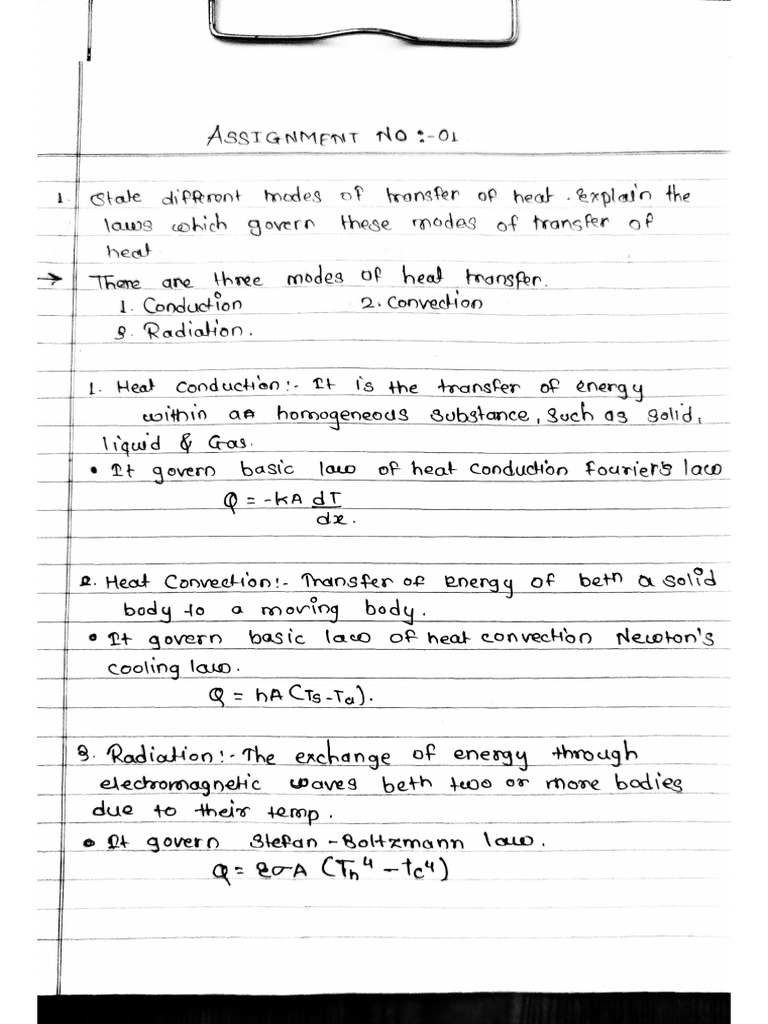 ASSIGNMENT NO :- 01
1. State different modes of transfer of heat. Explain the
laws which govern these modes of transfer of
heat
→ There are three modes of heat transfer.
1. Conduction 2. Convection
3. Radiation.
1. Heat Conduction:- It is the transfer of energy
within an homogeneous substance, such as solid,
liquid & Gas.
• It govern basic law of heat conduction Fourier's law
Q = -KA dT
dx.
2. Heat Convection:- Transfer of Energy of betn a solid
body to a moving body.
• It govern basic law of heat convection Newton's
cooling law.
Q = hA (Ts - Ta).
3. Radiation:- The exchange of energy through
electromagnetic waves betn two or more bodies
due to their temp.
• It govern Stefan - Boltzmann law.
Q = εσA (Th⁴ - tc⁴)